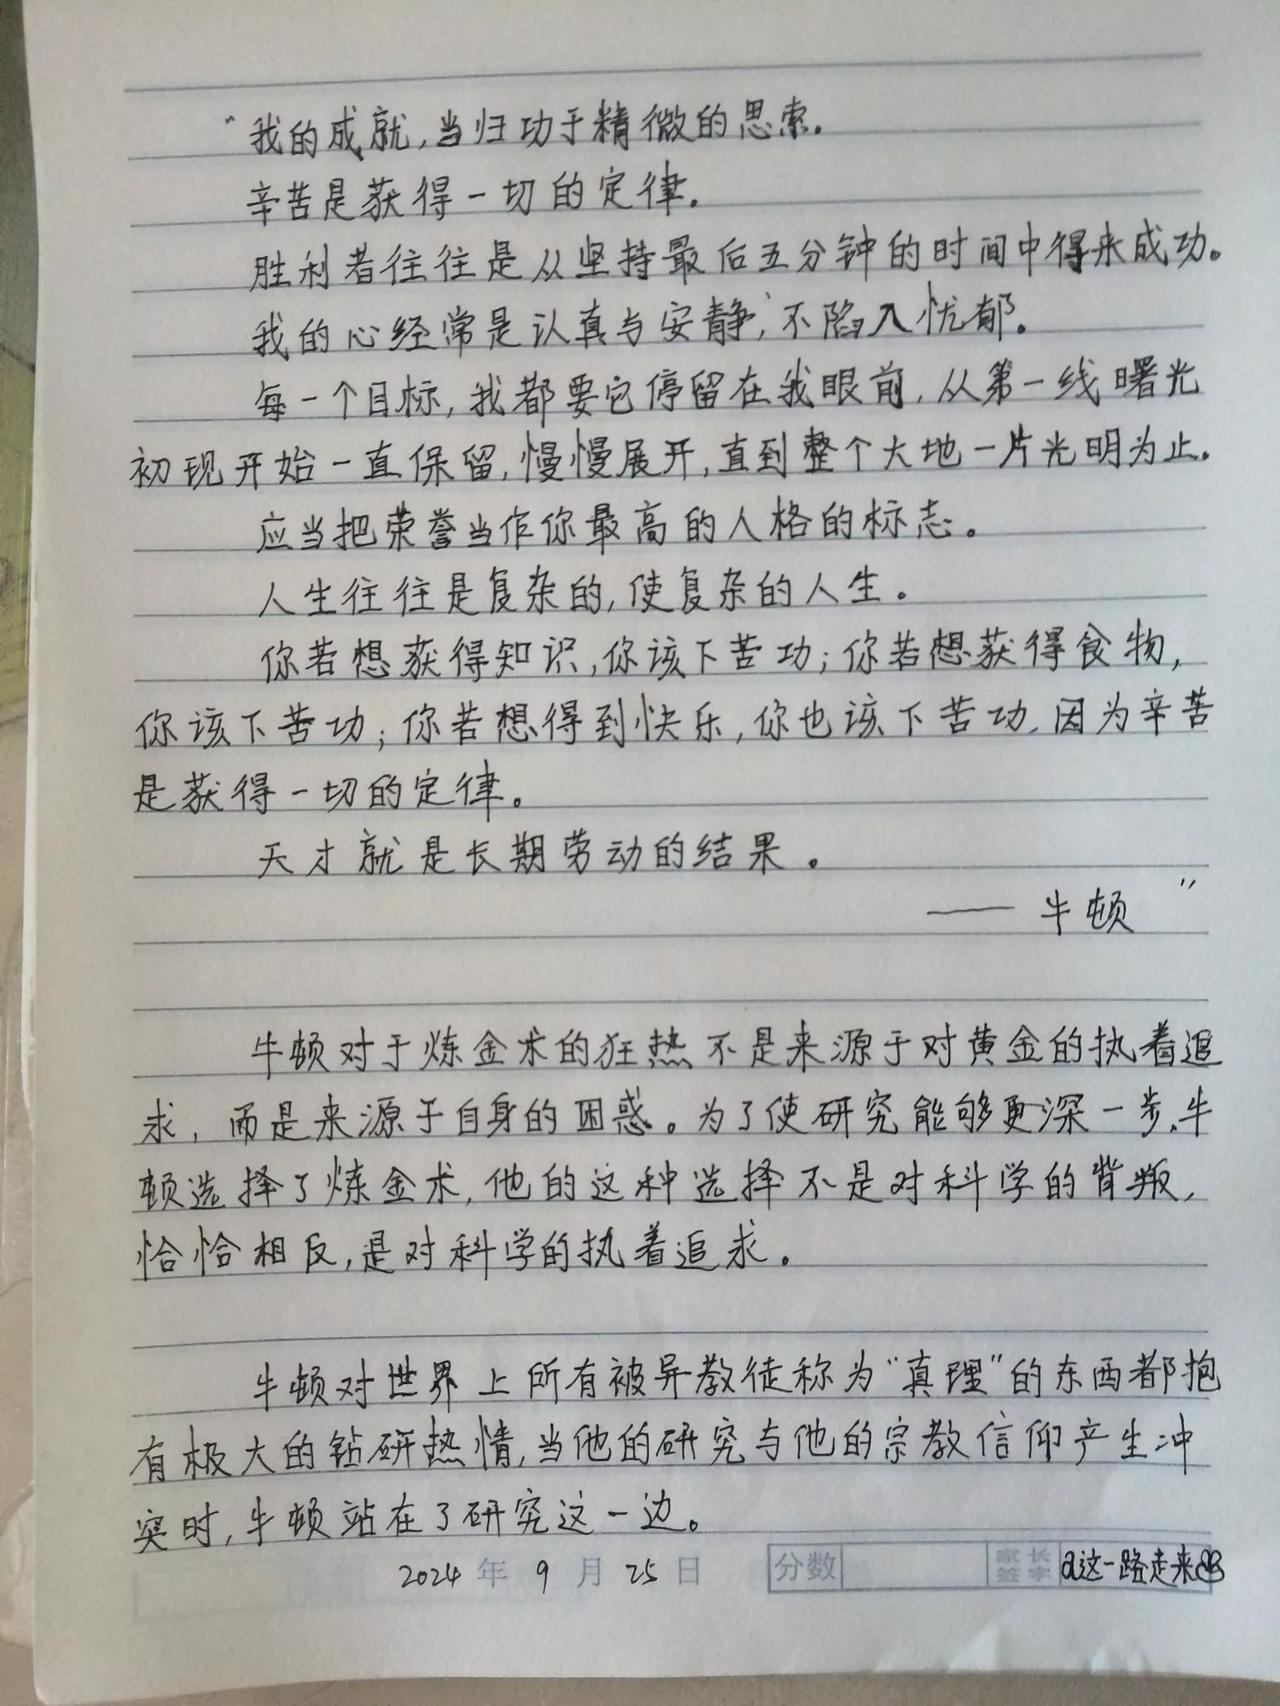 “我的成就,当归功于精微的思索.
辛苦是获得一切的定律.
胜利者往往是从坚持最后五分钟的时间中得来成功。
我的心经常是认真与安静,不陷入忧郁。
每一个目标,我都要它停留在我眼前,从第一线曙光
初现开始一直保留,慢慢展开,直到整个大地一片光明为止.
应当把荣誉当作你最高的人格的标志。
人生往往是复杂的,使复杂的人生。
你若想获得知识,你该下苦功;你若想获得食物,
你该下苦功;你若想得到快乐,你也该下苦功,因为辛苦
是获得一切的定律。
天才就是长期劳动的结果。
——牛顿”
牛顿对于炼金术的狂热不是来源于对黄金的执着追
求,而是来源于自身的困惑。为了使研究能够更深一步,牛
顿选择了炼金术,他的这种选择不是对科学的背叛,
恰恰相反,是对科学的执着追求。
牛顿对世界上所有被异教徒称为“真理”的东西都抱
有极大的钻研热情,当他的研究与他的宗教信仰产生冲
突时,牛顿站在了研究这一边。
2024年9月25日 分数 家长签字 a这一路走来